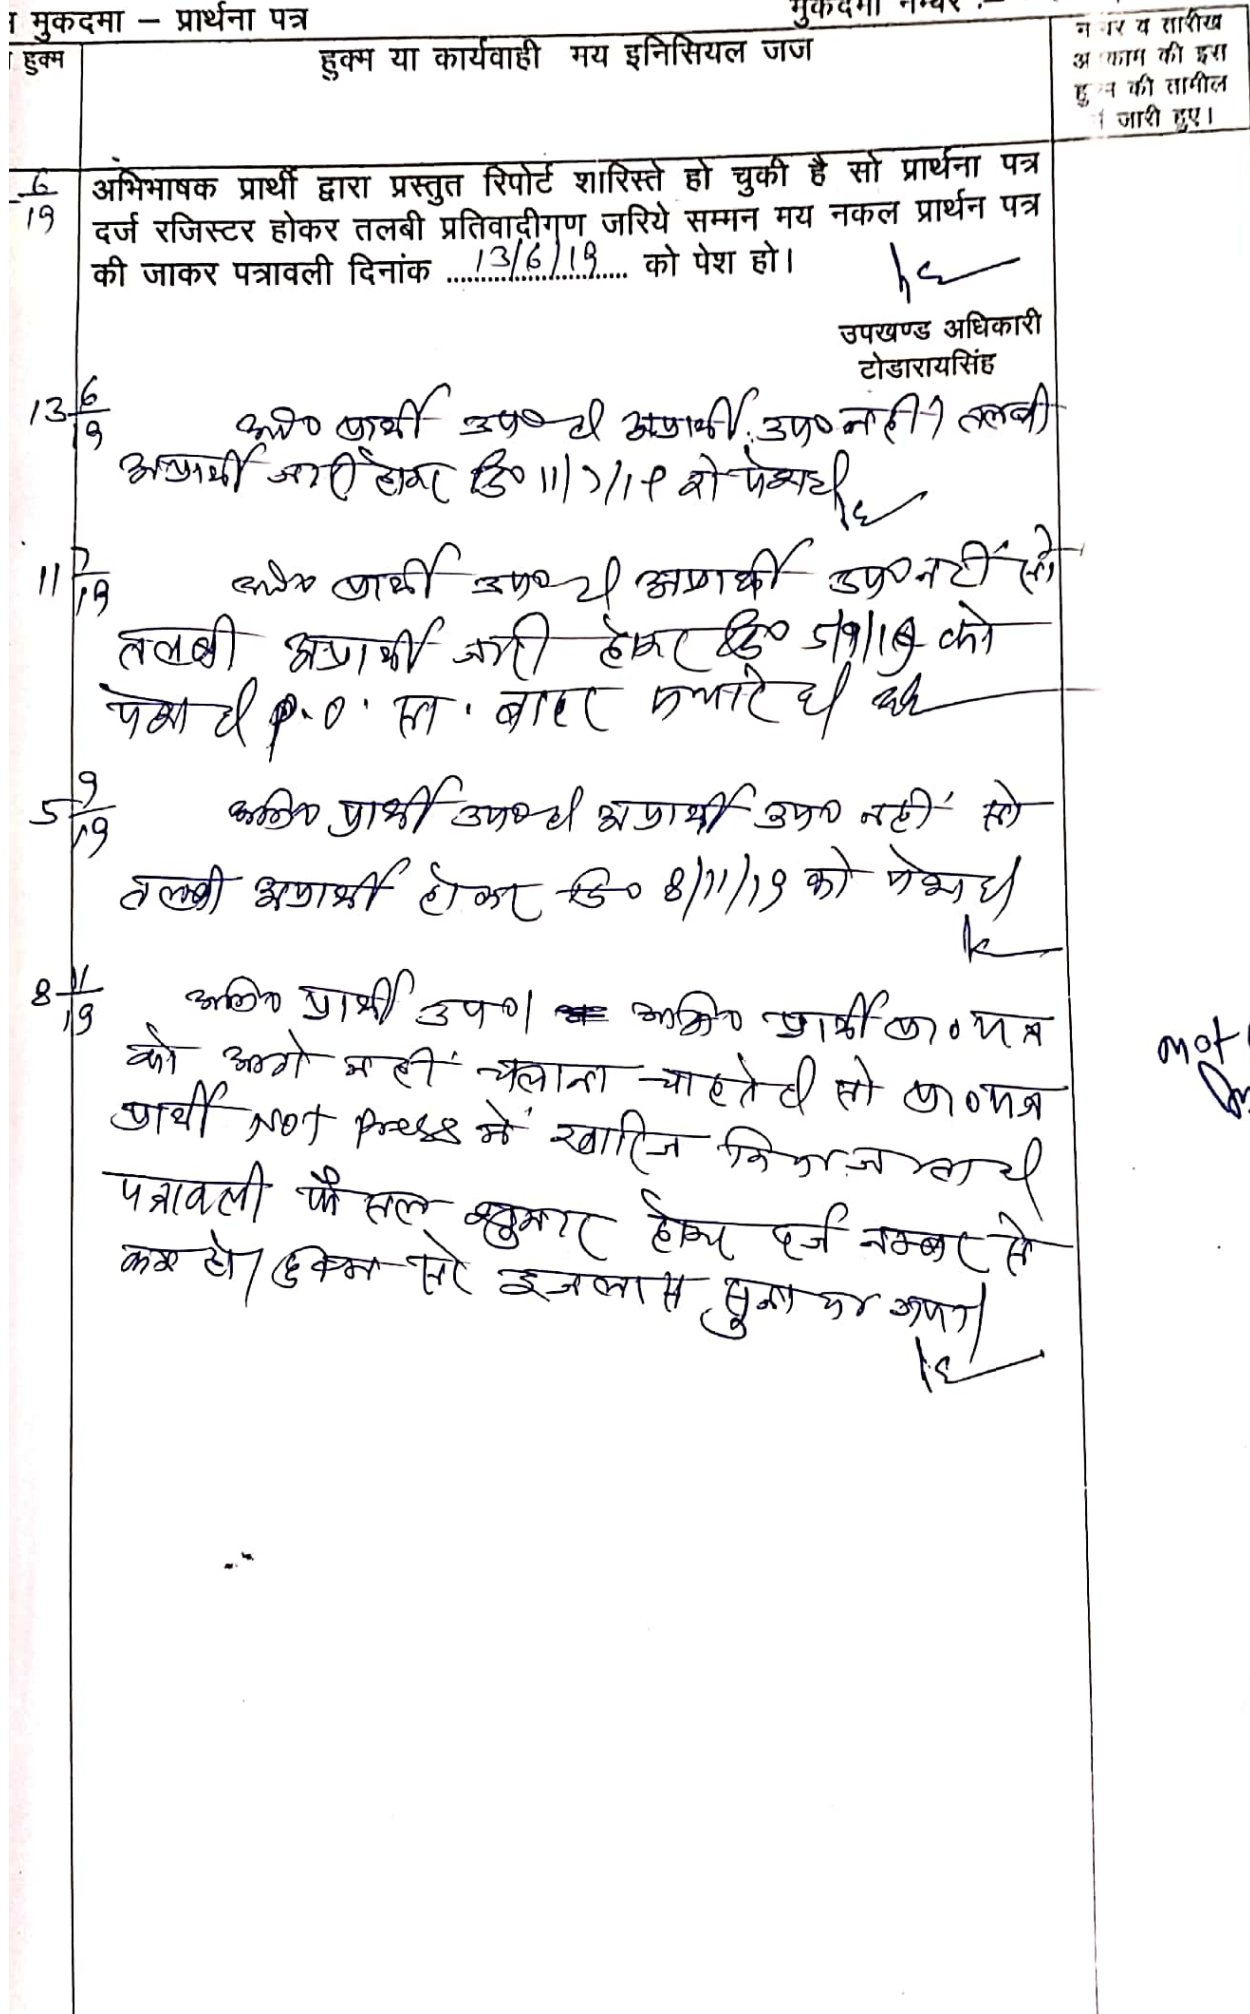 मुकदमा – प्रार्थना पत्र
मुकदमा नम्बर :-
हुक्म
हुक्म या कार्यवाही मय इनिसियल जज
व तारीख
की इस
की तामील
जारी हुए।
6/19
अभिभाषक प्रार्थी द्वारा प्रस्तुत रिपोर्ट शारिस्ते हो चुकी है सो प्रार्थना पत्र
दर्ज रजिस्टर होकर तलबी प्रतिवादीगण जरिये सम्मन मय नकल प्रार्थन पत्र
की जाकर पत्रावली दिनांक 13/6/19 को पेश हो।
उपखण्ड अधिकारी
टोडारायसिंह
13 6/19
अभि० प्रार्थी उप० है अप्रार्थी उप० नहीं। तलबी
अप्रार्थी जारी होकर दि० 11/7/19 को पेश हो
11 7/19
अभि० प्रार्थी उप० है अप्रार्थी उप० नहीं सो
तलबी अप्रार्थी जारी होकर दि० 5/9/19 को
पेश हो P.O. सा. बाहर पधारे है
5 9/19
अभि० प्रार्थी उप० है अप्रार्थी उप० नहीं सो
तलबी अप्रार्थी होकर दि० 8/11/19 को पेश हो
8 11/19
अभि० प्रार्थी उप०। अभि० प्रार्थी प्रा० पत्र
को आगे नहीं चलाना चाहते है सो प्रा० पत्र
प्रार्थी Not Press में खारिज किया जाता है
पत्रावली फैसल शुमार होकर दर्ज नम्बर से
कम हो। हुक्म सरे इजलास सुनाया गया।
not